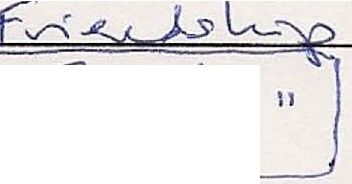 Friendship
"